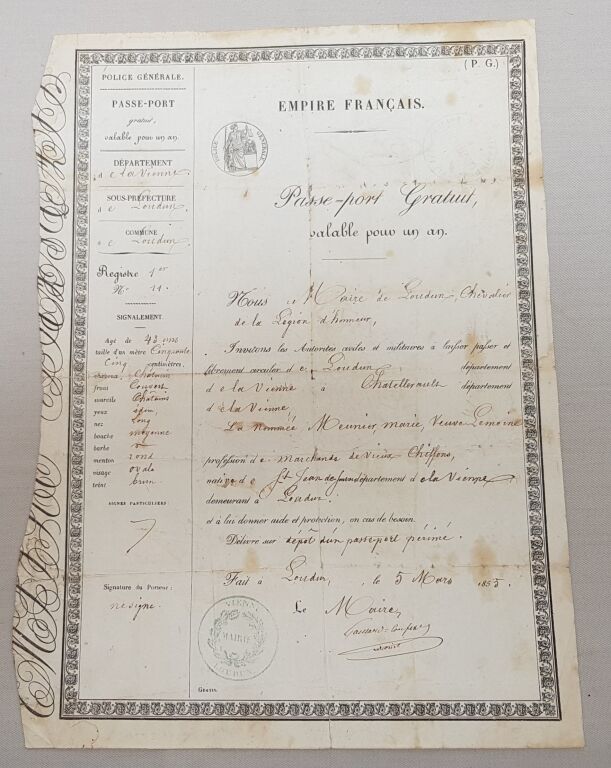 POLICE GÉNÉRALE.
PASSE-PORT
gratuit,
valable pour un an.
DÉPARTEMENT
de la Vienne
SOUS-PRÉFECTURE
de Loudun
COMMUNE
de Loudun
Registre 1er
No 11.
SIGNALEMENT
Agé de 43 ans
taille d'un mètre Cinquante
Cinq centimètres,
Chatain
front Couvert
sourcils Chatains
yeux
nez long
bouche moyenne
barbe
menton rond
visage ovale
teint brun
SIGNES PARTICULIERS:
Signature du Porteur:
ne signe
(P. G.)
EMPIRE FRANÇAIS.
POLICE GÉNÉRALE
Passe-port Gratuit,
valable pour un an.
Nous Maire de Loudun, Chevalier
de la Légion d'honneur,
Invitons les Autorités civiles et militaires à laisser passer et
librement circuler de Loudun département
de la Vienne à Chatellerault département
de la Vienne
La nommée Meunier, marie, Veuve Lemoine
profession de marchande de Vieux Chiffons,
native de St Jean de département de la Vienne
demeurant à Loudun.
et à lui donner aide et protection, en cas de besoin.
Délivré sur dépôt d'un passe-port périmé.
Fait à Loudun, le 5 Mars 1855.
Le Maire
VIENNE
MAIRIE
LOUDUN
Gratis.